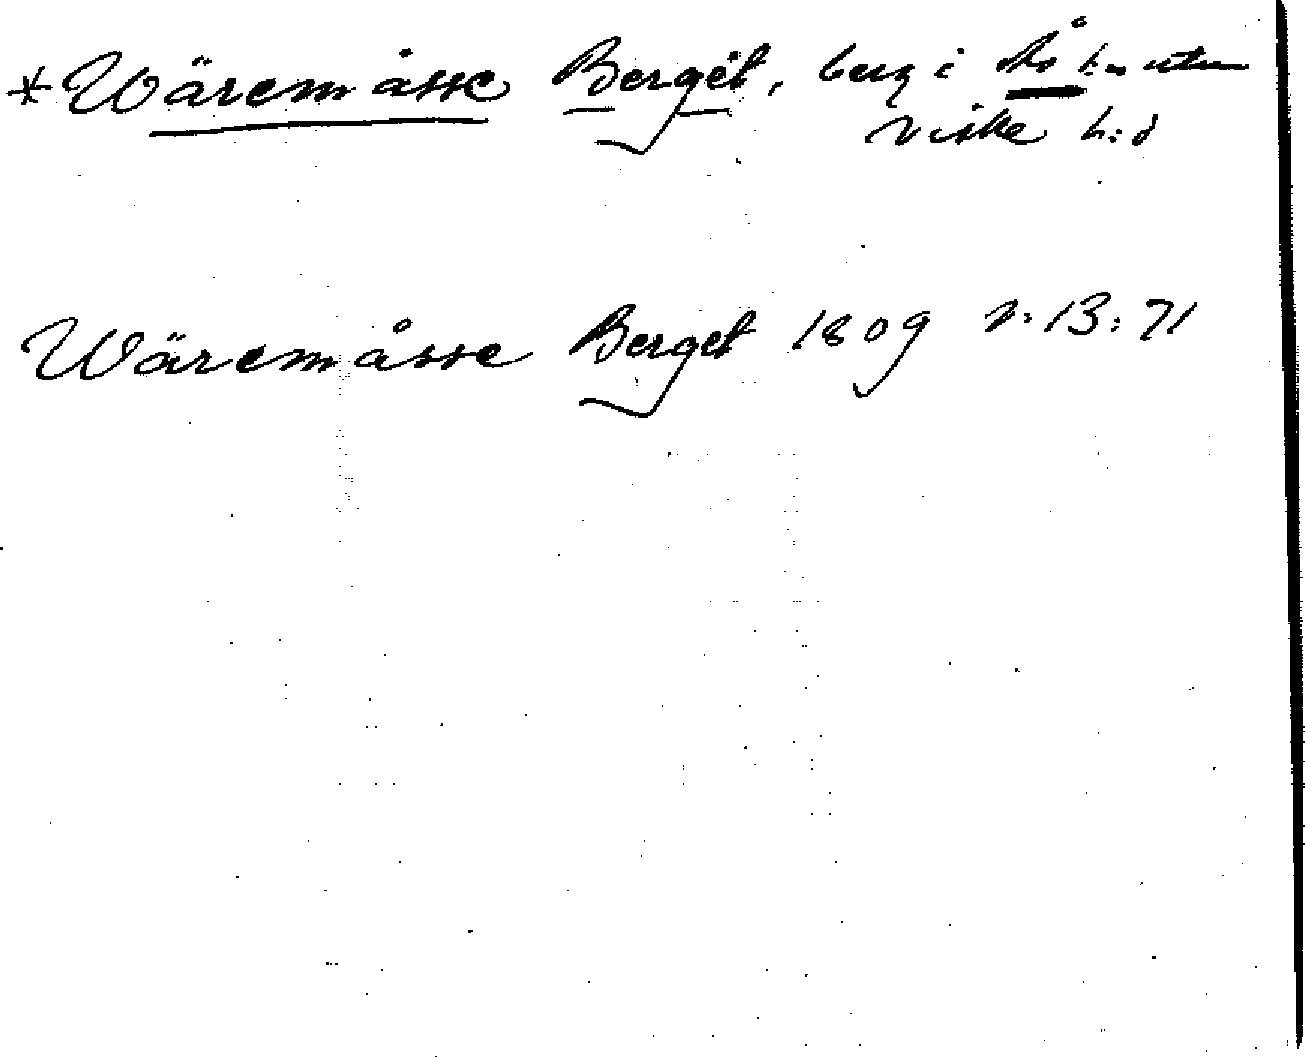 *Wäremåsse Berget, berg i
Viske h:d
Wäremåsse Berget 1809 v: 13: 71